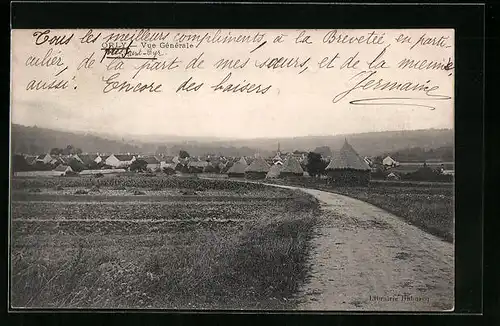 Tous les meilleurs compliments, à la Brevetée en parti-
ORLY - Vue Générale
culier, de la part de mes sœurs, et de la mienne,
aussi. Encore des baisers Germaine
Librairie